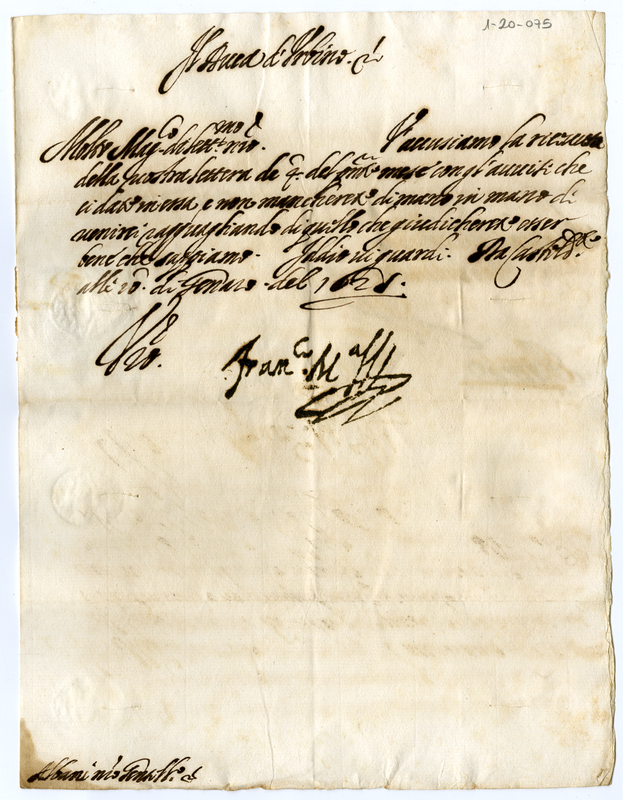 1-20-075
Il Duca d'Urbino. &c.
Molto Mag.co dilett.mo n.ro. V'accusiamo la riceuuta
della vostra lettera de 9. del pnte mese con gl'auuisi che
ci date in essa, e non mancherete di mano in mano di
uenirci ragguagliando di quello che giudicherete esser
bene che sappiamo. Iddio ui guardi. Da Castel D.te
alli 20. di Gennaro del 1621.
V.ro
Fran.co M.a
Albani n.ro Gentil.o &c.